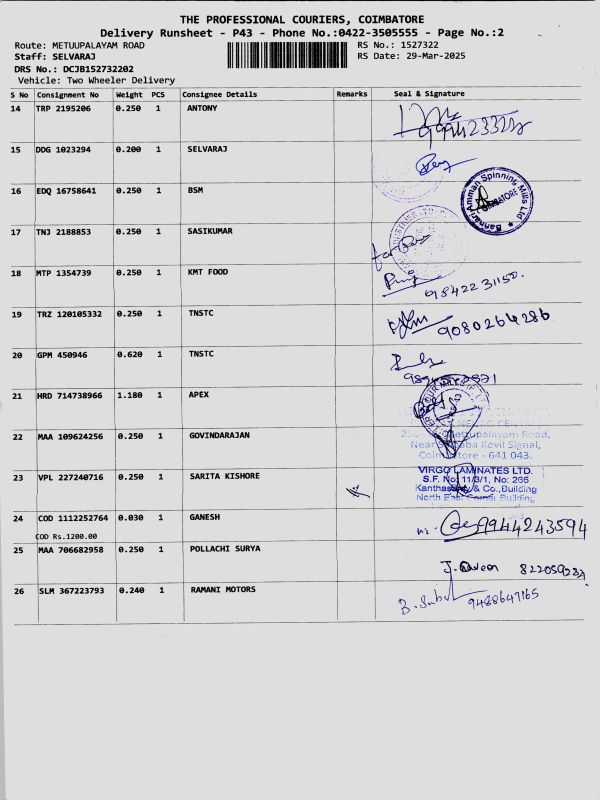 THE PROFESSIONAL COURIERS, COIMBATORE
Delivery Runsheet - P43 - Phone No.:0422-3505555 - Page No.:2
Route: METUUPALAYAM ROAD RS No.: 1527322
Staff: SELVARAJ RS Date: 29-Mar-2025
DRS No.: DCJB152732202
Vehicle: Two Wheeler Delivery
S No Consignment No Weight PCS Consignee Details Remarks Seal & Signature
14 TRP 2195206 0.250 1 ANTONY
15 DDG 1023294 0.200 1 SELVARAJ
16 EDQ 16758641 0.250 1 BSM
Bannari Amman Spinning Mills Ltd
17 TNJ 2188853 0.250 1 SASIKUMAR
for
18 MTP 1354739 0.250 1 KMT FOOD
9842231150.
19 TRZ 120105332 0.250 1 TNSTC 9080264286
20 GPM 450946 0.620 1 TNSTC
21 HRD 714738966 1.180 1 APEX
22 MAA 109624256 0.250 1 GOVINDARAJAN
Mettupalayam Road,
Kovil Signal,
Coimbatore - 641 043.
23 VPL 227240716 0.250 1 SARITA KISHORE
VIRGO LAMINATES LTD.
S.F. No: 11/3/1, No: 266
& Co., Building
North East Corner Building
24 COD 1112252764 0.030 1 GANESH 9944243594
COD Rs.1200.00
25 MAA 706682958 0.250 1 POLLACHI SURYA
J. Naveen
26 SLM 367223793 0.240 1 RAMANI MOTORS
9488647165